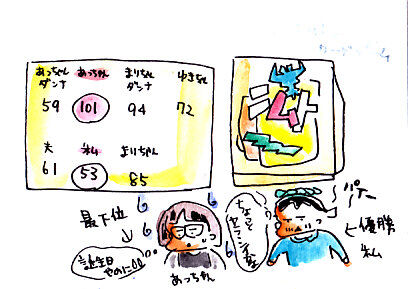 あっちゃん
ダンナ
59
あっちゃん
101
まりちゃん
ダンナ
94
ゆきちゃん
72
夫
61
私
53
まりちゃん
85
最下位
誕生日
なのに
あっちゃん
ちょっと
パター
優勝
私